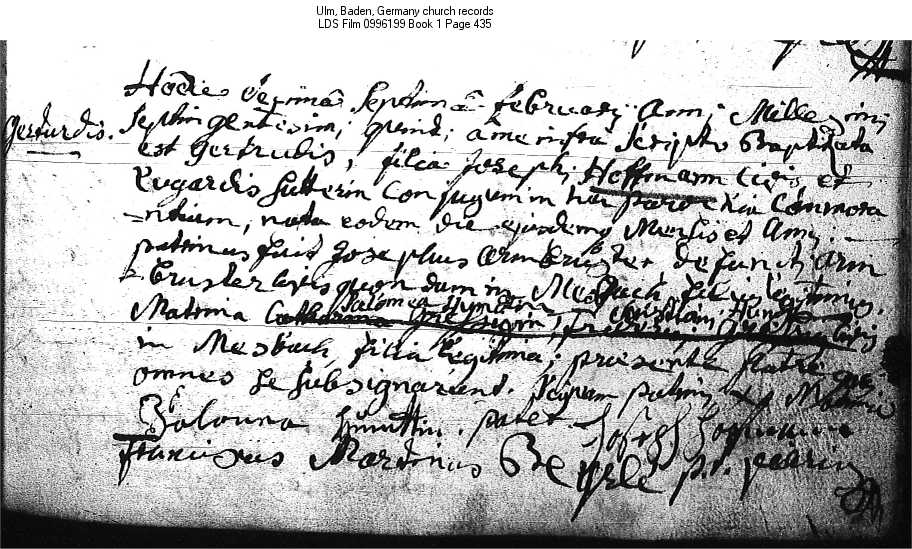 Ulm, Baden, Germany church records
LDS Film 0996199 Book 1 Page 435
Hodie decima septima februarij Anni Mille simi
Gertrudis.
septingentesimi, quind: a me infra scripto Baptizata
est Gertrudis, filia Josephi Hoffmann civis et
Lugardis Sutterin Conjugum in hac parochia Commora
ntium, nata eodem die ejusdem Mensis et Anni.
patrinus fuit Josephus Armbruster defuncti Arm
bruster civis quondam in Mesbach filius legitimus
Salomea
Matrina Catharina civis
in Mesbach filia legitima; praesente patre qui
omnes se subsignarunt. patrini et Matrina
Salomea pater Joseph
franciscus Martinus